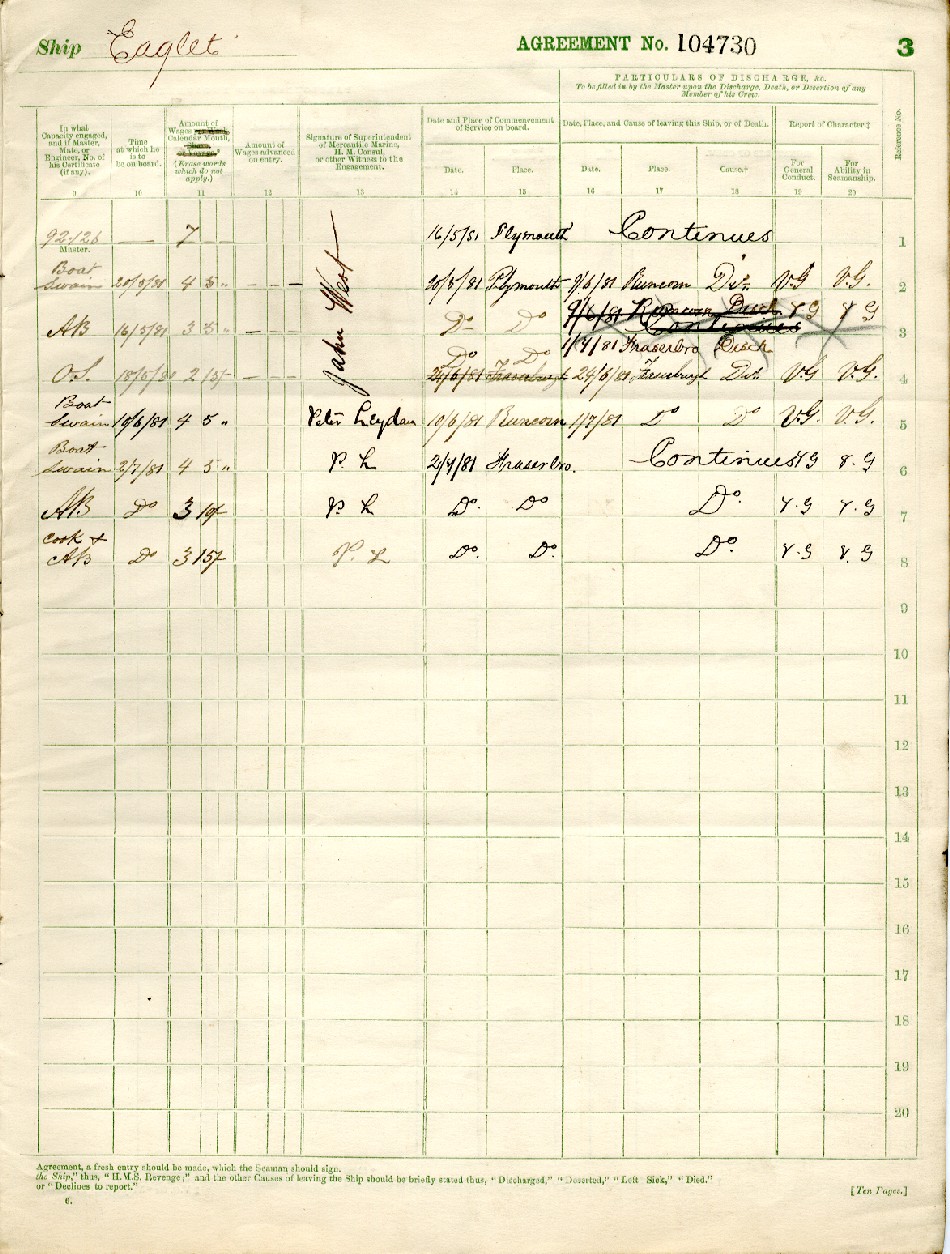 Ship Eaglet AGREEMENT No. 104730 3
PARTICULARS OF DISCHARGE, &c.
To be filled in by the Master upon the Discharge, Death, or Desertion of any
Member of his Crew.
In what Capacity engaged, and if Master, Mate, or Engineer, No. of his Certificate (if any).
Time at which he is to be on board.
Amount of Wages Calendar Month, (Erase words which do not apply.)
Amount of Wages advanced on entry.
Signature of Superintendent of Mercantile Marine, H. M. Consul, or other Witness to the Engagement.
Date and Place of Commencement of Service on board.
Date, Place, and Cause of leaving this Ship, or of Death.
Report of Character‡
Reference No.
Date. Place. Date. Place. Cause.† For General Conduct. For Ability in Seamanship.
9 10 11 12 13 14 15 16 17 18 19 20
92126 — 7 16/5/81 Plymouth Continues 1
Master.
John West
Boat Swain 20/5/81 4 5 " 20/5/81 Plymouth 9/6/81 Runcorn Dis. VG V.G. 2
9/6/81 Runcorn Disch V G V G
AB 16/5/81 3 5 " — Do Do Continues 3
1/7/81 Fraserbro Disch
Do Do
O.S. 18/5/81 2 15/- 24/6/81 Fraserburgh 24/6/81 Fraserburgh Dis. VG V.G. 4
Boat Swain 10/6/81 4 5 " Peter Leydan 10/6/81 Runcorn 1/7/81 Do Do V.G. V.G. 5
Boat Swain 2/7/81 4 5 " P. L 2/7/81 Fraserbro. Continues V G V. G 6
AB Do 3 10/- P. L Do. Do Do. V. G V. G 7
Cook & AB Do 3 15/- P. L Do. Do. Do. V. G V. G 8
9
10
11
12
13
14
15
16
17
18
19
20
Agreement, a fresh entry should be made, which the Seaman should sign.
the Ship," thus, "H.M.S. Revenge;" and the other Causes of leaving the Ship should be briefly stated thus, "Discharged," "Deserted," "Left Sick," "Died."
or "Declines to report."
6.
[Ten Pages.]